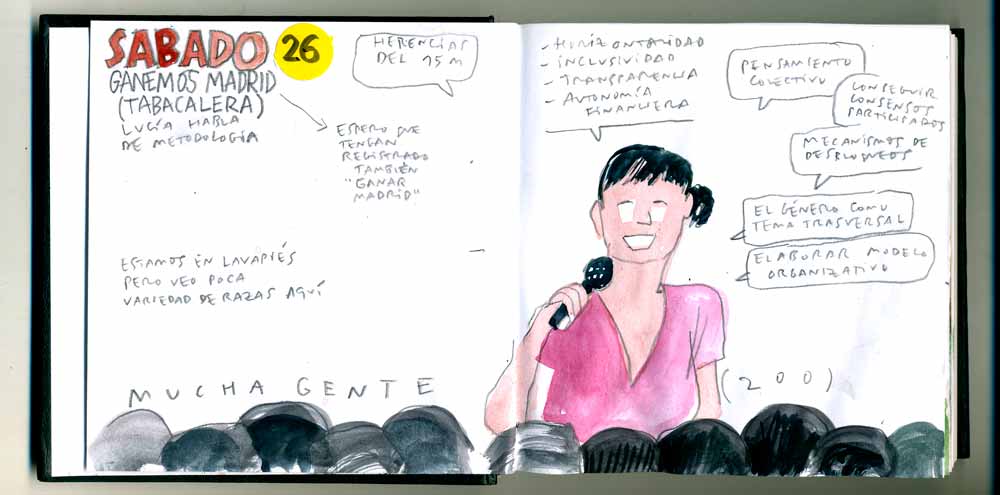 SABADO 26
GANEMOS MADRID
(TABACALERA)
LUCÍA HABLA
DE METODOLOGÍA
ESPERO QUE
TENGAN
REGISTRADO
TAMBIÉN
"GANAR
MADRID"
HERENCIAS
DEL 15M
ESTAMOS EN LAVAPIÉS
PERO VEO POCA
VARIEDAD DE RAZAS AQUÍ
MUCHA GENTE
(200)
- HORIZONTALIDAD
- INCLUSIVIDAD
- TRANSPARENCIA
- AUTONOMÍA
FINANCIERA
PENSAMIENTO
COLECTIVO
CONSEGUIR
CONSENSOS
PARTICIPADOS
MECANISMOS DE
DESBLOQUEOS
EL GÉNERO COMO
TEMA TRASVERSAL
ELABORAR MODELO
ORGANIZATIVO